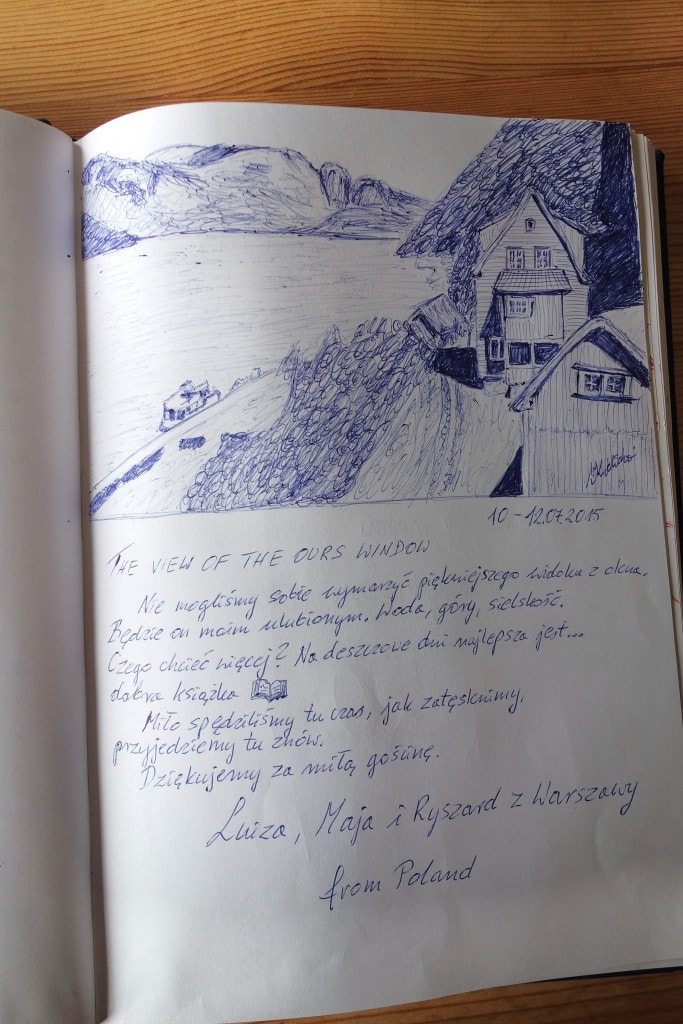 10 - 12.07.2015
THE VIEW OF THE OURS WINDOW
Nie mogliśmy sobie wymarzyć piękniejszego widoku z okna.
Będzie on moim ulubionym. Woda, góry, sielskość.
Czego chcieć więcej? Na deszczowe dni najlepsza jest...
dobra książka
Miło spędziliśmy tu czas, jak zatęsknimy,
przyjedziemy tu znów.
Dziękujemy za miłą gościnę.
Luiza, Maja i Ryszard z Warszawy
from Poland